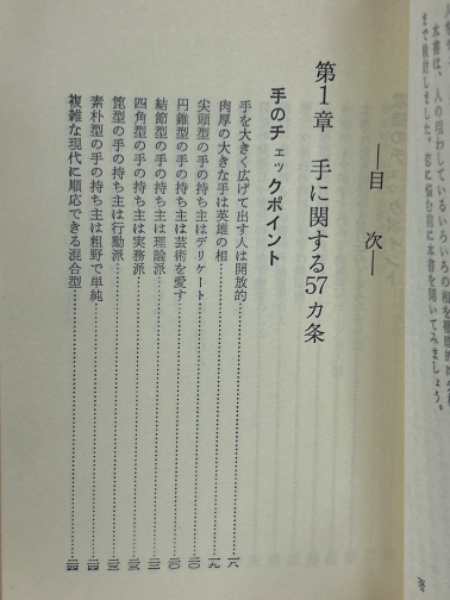 本書は、人の現わしているいろいろの相を
まで検討しました。恋に悩む前に本書を開いてみましょう。
―目　次―
第1章　手に関する57カ条
手のチェックポイント
手を大きく広げて出す人は開放的……一八
肉厚の大きな手は英雄の相……一九
尖頭型の手の持ち主はデリケート……二〇
円錐型の手の持ち主は芸術を愛す……二〇
結節型の手の持ち主は理論派……
四角型の手の持ち主は実務派……
箆型の手の持ち主は行動派……
素朴型の手の持ち主は粗野で単純……二四
複雑な現代に順応できる混合型……二四